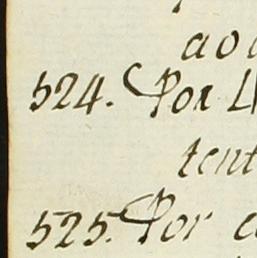 524. Por
tent
525. Por